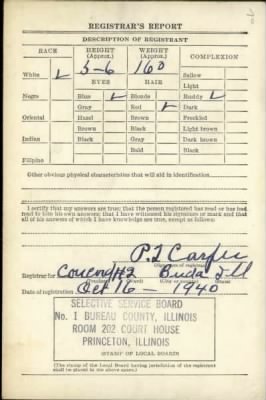 REGISTRAR'S REPORT
DESCRIPTION OF REGISTRANT
RACE HEIGHT (Approx.) WEIGHT (Approx.) COMPLEXION
5-6 160
White Sallow
EYES HAIR Light
Negro Blue Blonde Ruddy
Gray Red Dark
Oriental Hazel Brown Freckled
Brown Black Light brown
Indian Black Gray Dark brown
Bald Black
Filipino
Other obvious physical characteristics that will aid in identification
I certify that my answers are true; that the person registered has read or has had read to him his own answers; that I have witnessed his signature or mark and that all of his answers of which I have knowledge are true, except as follows:
Registrar for #2 Buda Ill
(Precinct) (Ward) (City or county) (State)
Date of registration Oct 16 - 1940
SELECTIVE SERVICE BOARD
No. 1 BUREAU COUNTY, ILLINOIS
ROOM 202 COURT HOUSE
PRINCETON, ILLINOIS
(STAMP OF LOCAL BOARD)
(The stamp of the Local Board having jurisdiction of the registrant shall be placed in the above space.)